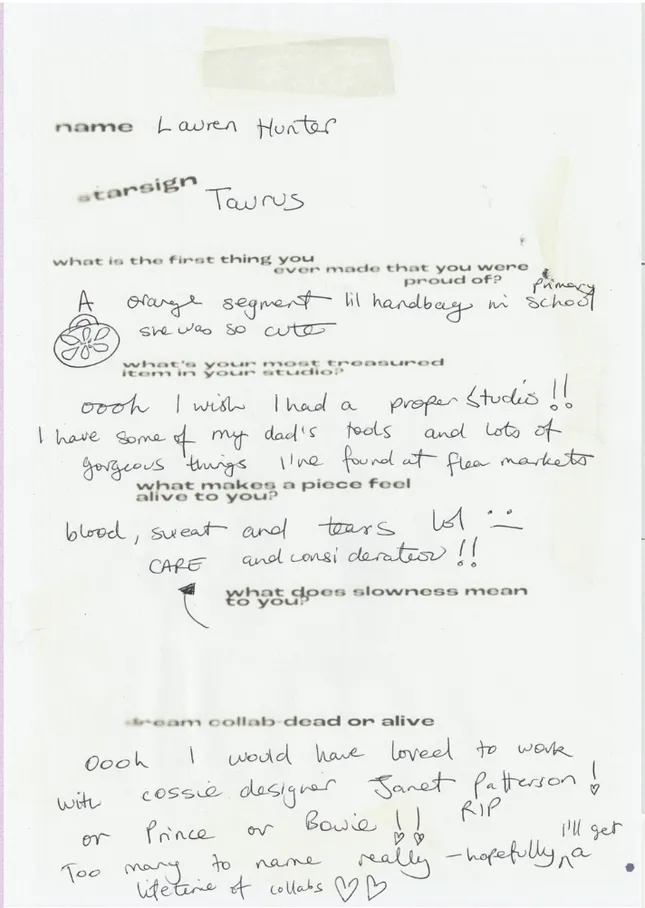 name Lauren Hunter
starsign Taurus
what is the first thing you
ever made that you were
proud of?
A orange segment lil handbag in primary school
she was so cute
what's your most treasured
item in your studio?
oooh I wish I had a proper studio!!
I have some of my dad's tools and lots of
gorgeous things I've found at flea markets
what makes a piece feel
alive to you?
blood, sweat and tears lol
CARE and consideration!!
what does slowness mean
to you?
dream collab dead or alive
Oooh I would have loved to work
with cossie designer Janet Patterson!
RIP
or Prince or Bowie!!
Too many to name really - hopefully I'll get a
lifetime of collabs ♡♡